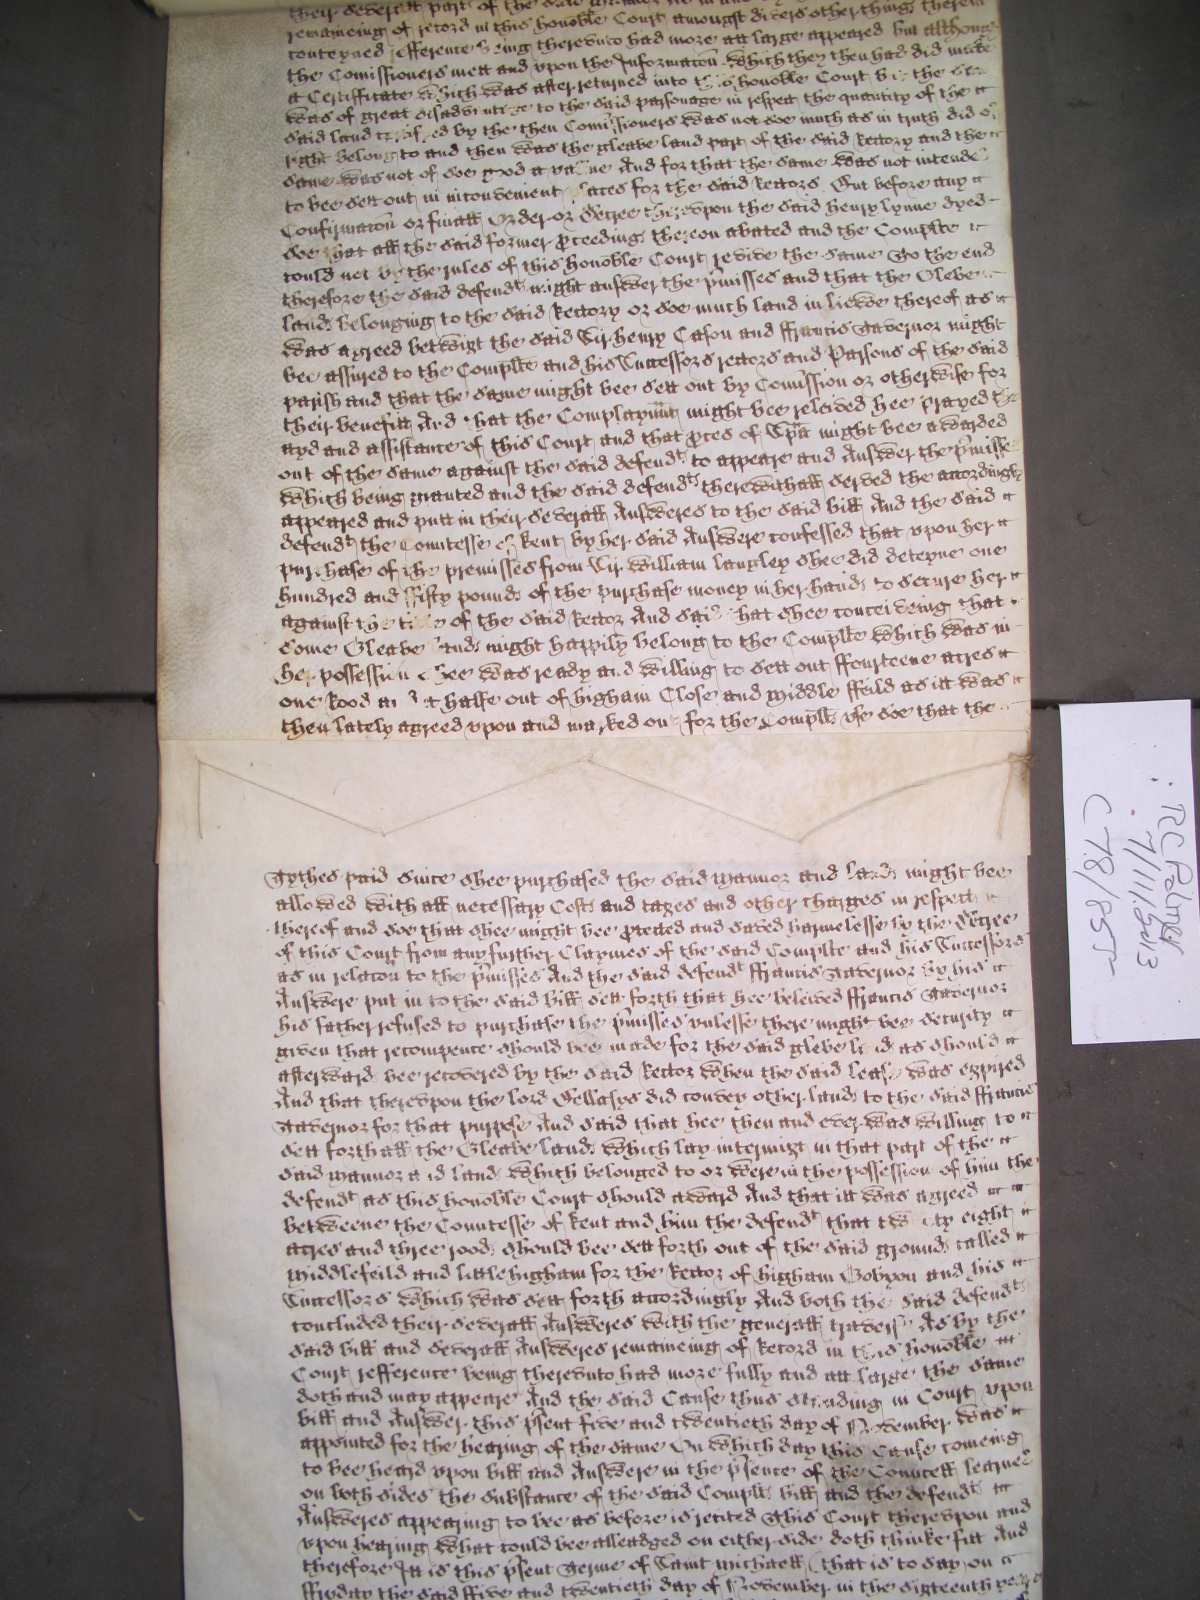 their severall part of the said
remaineing of record in this honoble Court amongst divers other things therein
conteyned refference being therevnto had more att large appeared but although
the Comissioners mett and vpon the Informacon which they then had did make
a Certifficate which was after returned into this honoble Court but the same
was of great disadvantage to the said parsonage in respect the quantity of the
said land certifyed by the then Comissioners was not soe much as in truth did of
right belong to and then was the gleabe land part of the said Rectory and the
same was not of soe good a value And for that the same was not intended
to bee sett out in inconvenient places for the said Rectors But before any
Confirmacon or finall Order or decree therevpon the said Henry Lynne dyed
soe that all the said former proceedings thereon abated and the Complte
could not by the rules of this honoble Court revive the same To the end
therefore the said defendts might answer the pmisses and that the Glebe
lands belonging to the said Rectory or soe much land in liewe thereof as
was agreed betwixt the said Sir Henry Cason and ffrancis Tavernor might
bee assured to the Complte and his Successors rectors and Parsons of the said
parish and that the same might bee sett out by Comission or otherwise for
their benefitt And that the Complaynnt might bee releived hee prayed the
ayd and assistance of this Court and that pces of Spa might bee awarded
out of the same against the said defendts to appeare and Answer the pmisses
which being granted and the said defendts therewithall served the accordingly
appeared and putt in their severall Answeres to the said bill And the said
defendt the Comtesse of Kent by her said Answere confessed that vpon her
purchase of the premisses from Sir William Langley shee did deteyne one
hundred and ffifty pounds of the purchase money in her hands to secure her
against the title of the said Rector And said that shee conceiveing that
some Gleabe lands might happily belong to the Complte which was in
her possession shee was ready and willing to sett out ffourteene acres
one Rood and a halfe out of higham Close and Middle ffeild as itt was
then lately agreed vpon and marked out for the Complts vse soe that the
Tythes paid since shee purchased the said Mannor and lands might bee
allowed with all necessary Costs and taxes and other charges in respect
thereof and soe that shee might bee protected and saved harmelesse by the decree
of this Court from any further Claymes of the said Complte and his Successors
as in relacon to the pmisses And the said defendt ffrancis Tavernor by his
Answere put in to the said bill sett forth that hee beleived ffrancis Tavernor
his father refused to purchase the pmisses vnlesse there might bee security
given that recompence should bee made for the said glebe land as should
afterward bee recovered by the said Rector when the said lease was expired
And that therevpon the lord Bellasys did convey other lands to the said ffrancis
Tavernor for that purpose And said that hee then and ever was willing to
sett forth all the Gleabe lands which lay intermixt in that part of the
said Mannor and lands which belonged to or were in the possession of him the
defendt as this honoble Court should award And that itt was agreed
betweene the Countesse of Kent and him the defendt that twenty eight
acres and three roods should bee sett forth out of the said grounds called
Middlefeild and little higham for the Rector of higham Gobyon and his
Successors which was sett forth accordingly And both the said defendts
concluded their severall Answeres with the generall travers As by the
said bill and severall Answeres remaineing of Record in this honoble
Court refference being therevnto had more fully and att large the same
doth and may appeare And the said Cause thus standing in Court vpon
bill and Answer this psent five and twentieth day of November was
appointed for the hearing of the same On which day this Cause comeing
to bee heard vpon bill and Answere in the psence of the Councell learned
on both sides the substance of the said Complts bill and the defendts
Answeres appearing to bee as before is recited This Court therevpon and
vpon hearing what could bee alleadged on either side doth thinke fitt And
therefore Itt is this psent Terme of Saint Michaell that is to say on
ffryday the said ffive and twentieth day of November in the sixteenth yeare
RC Palmer
7/11/2013
C78/855